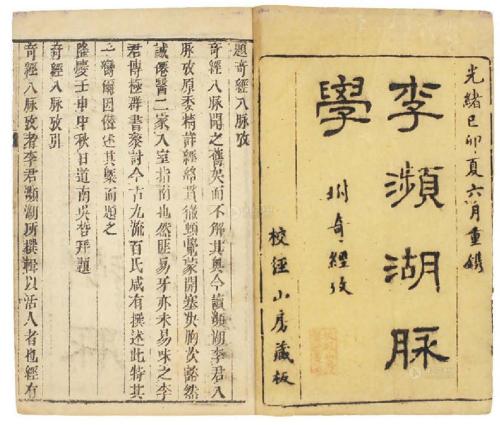 光緒己卯夏六月重鐫
李瀕湖脉
學
附奇經攷
校經山房藏板
題奇經八脉攷
奇經八脉聞之舊矣而不解其奧今讀瀕湖李君八
脉攷原委精詳經絡貫徹頓覺蒙開塞決胸次豁然
誠僊醫二家入室指南也然匪易牙亦未易味之李
君博極群書參討今古九流百氏咸有撰述此特其
一臠爾因僭述其槩而題之
隆慶壬申中秋日道南吳哲拜題
奇經八脉攷引
奇經八脉攷者李君瀕湖所撰輯以活人者也經有